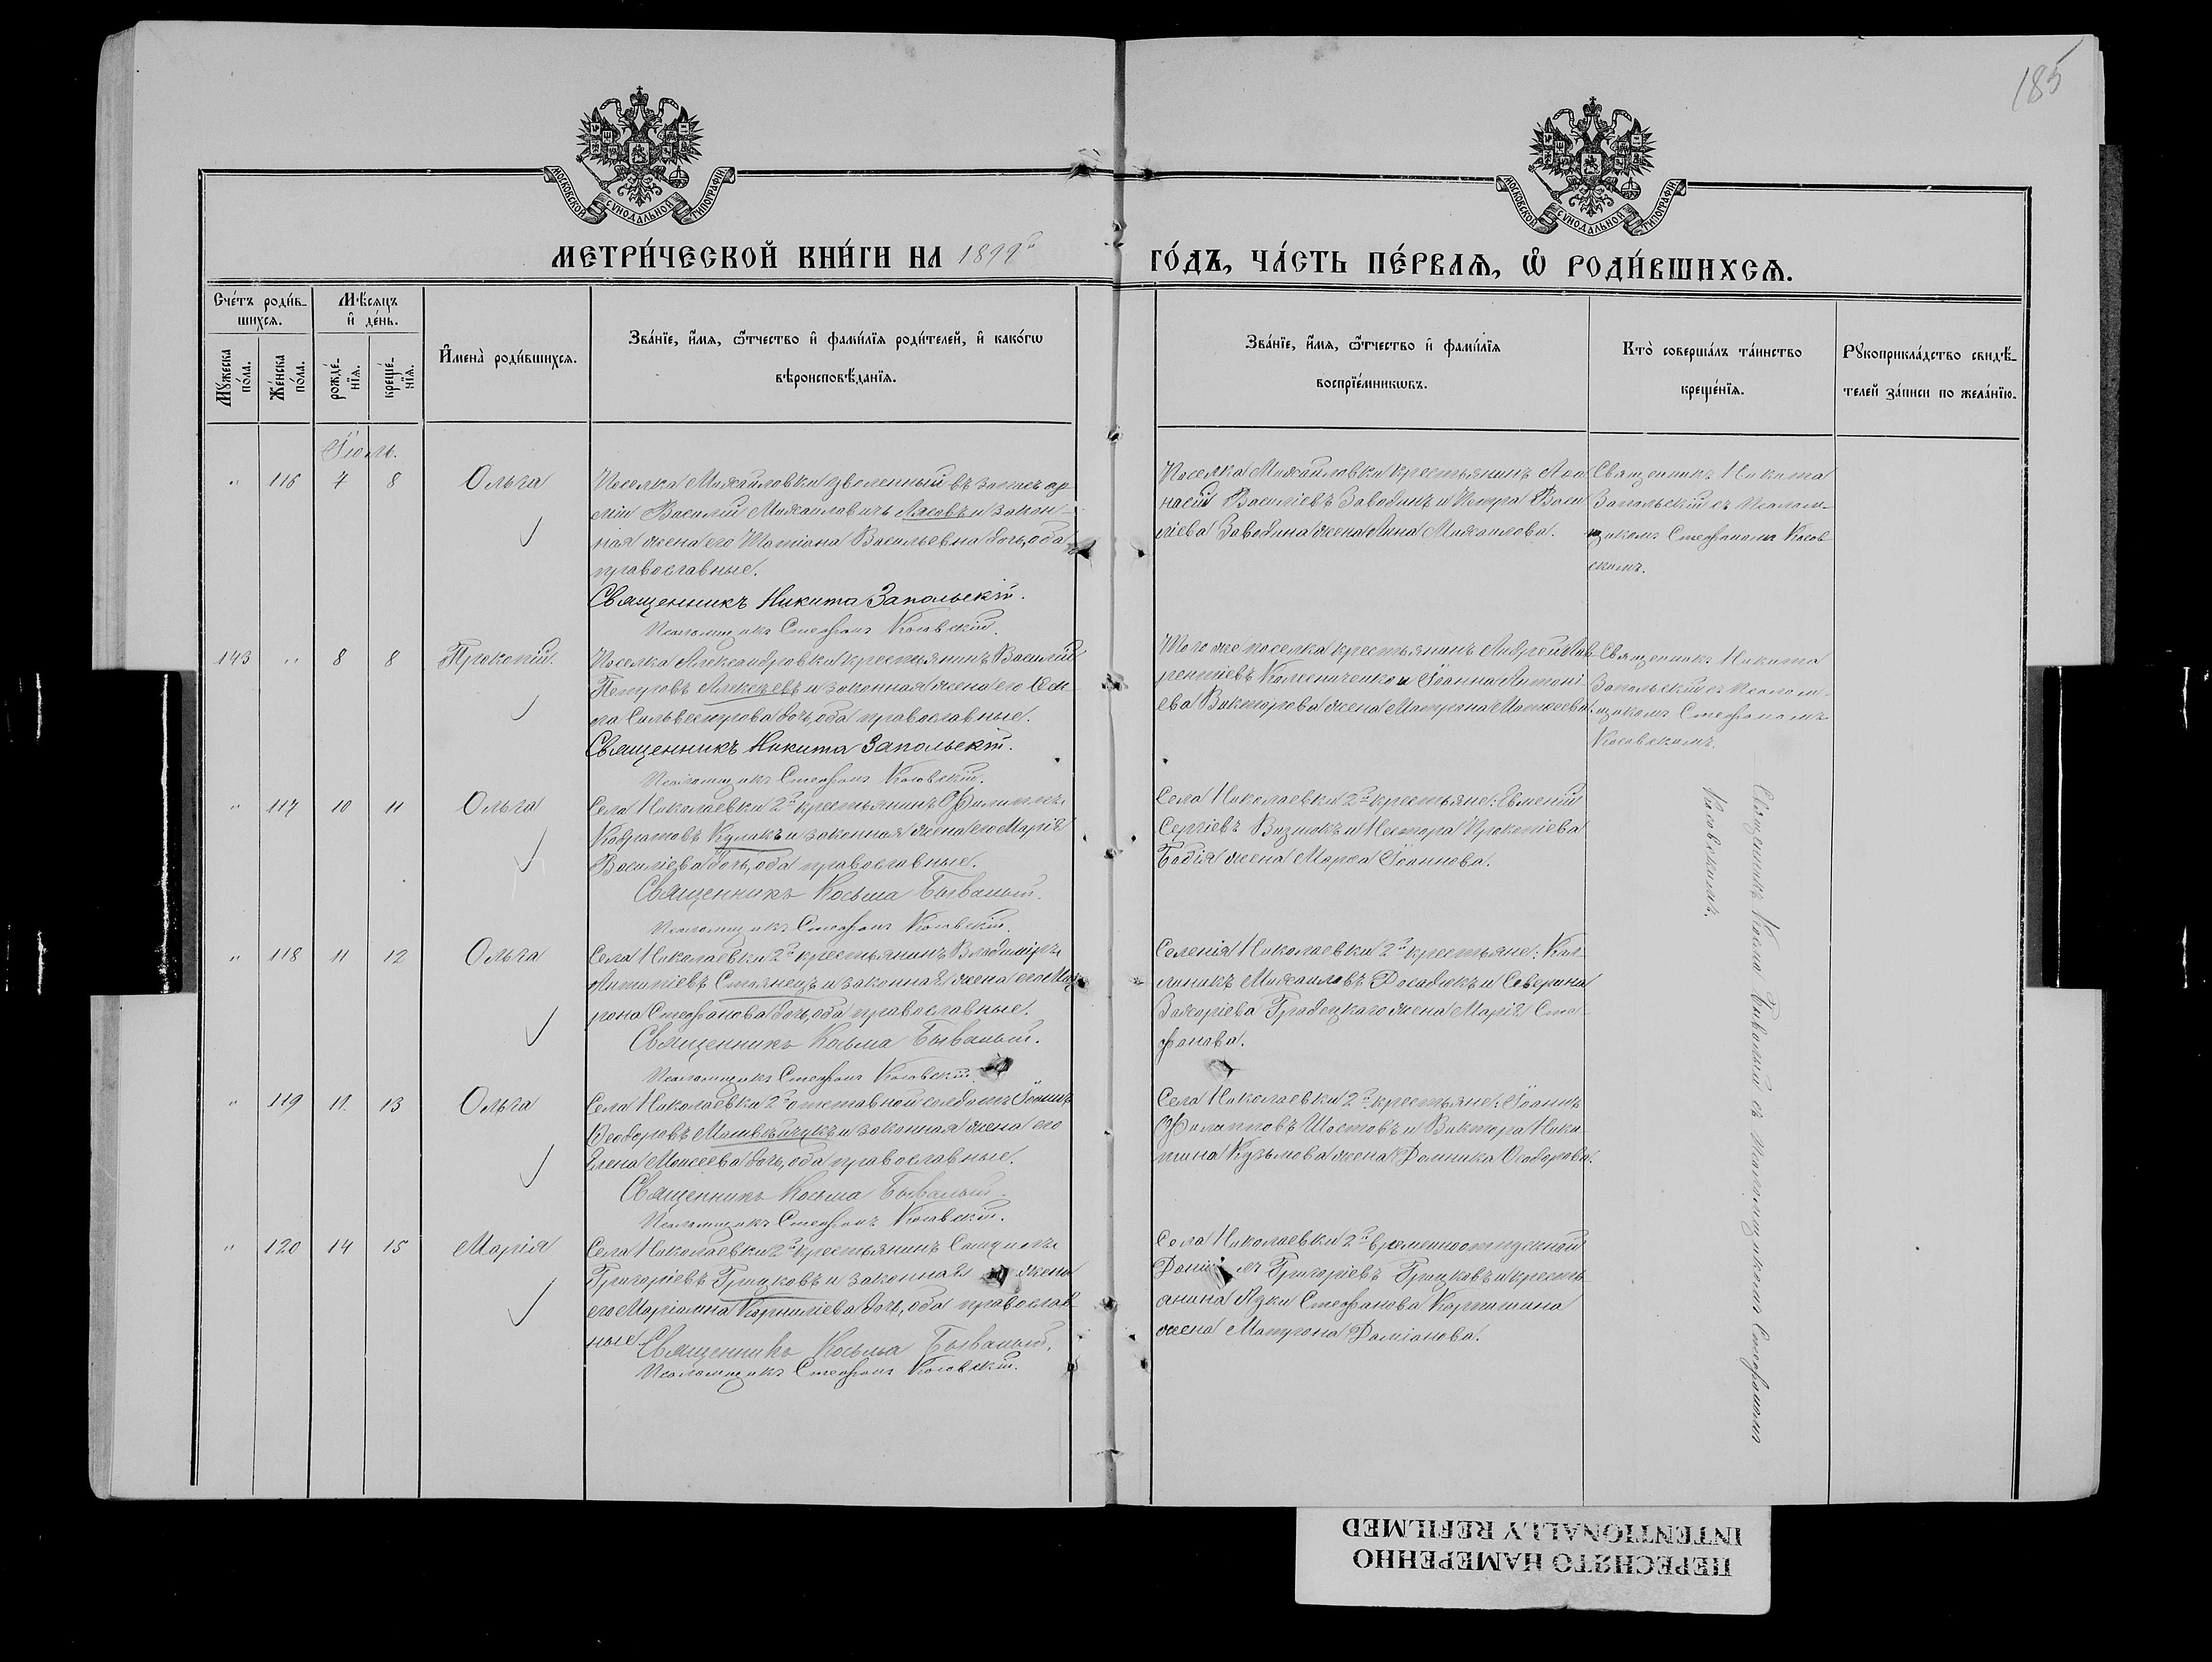 185
МОСКОВСКОЙ СУНОДАЛЬНОЙ ТИПОГРАФІИ
МОСКОВСКОЙ СУНОДАЛЬНОЙ ТИПОГРАФІИ
МЕТРИ́ЧЕСКОЙ КНИ́ГИ НА 1899й
ГО́ДЪ, ЧА́СТЬ ПЕ́РВАѦ, Ѡ РОДИ́ВШИХСѦ.
Сче́тъ роди́в-
шихсѧ.
Мѣ́сѧцъ
и҆ де́нь.
Мꙋ́жеска
по́ла.
Же́нска
по́ла.
рожде́-
нїѧ.
креще́-
нїѧ.
И҆мена̀ роди́вшихсѧ.
Зва́нїе, и҆́мѧ, ѻ҆́тчество и҆ фами́лїѧ роди́телей, и҆ како́гѡ
вѣроисповѣ́данїѧ.
Зва́нїе, и҆́мѧ, ѻ҆́тчество и҆ фами́лїѧ
воспрїе́мникѡвъ.
Кто̀ соверша́лъ та́инство
креще́нїѧ.
Рꙋкоприкла́дство свидѣ́-
телей за́писи по жела́нїю.
Іюль.
" 116 7 8 Ольга
Поселка Михайловки уволенный въ запасъ ар
міи Василій Михаиловичъ Лясовъ и закон-
ная жена его Татіана Васильевна дочь, оба
православные.
Священникъ Никита Запольскій.
Псаломщикъ Стефанъ Косовскій.
Поселка Михайловки крестьянинъ Афа
насій Василіевъ Заводинъ и Петра Васи
ліева Заводина жена Анна Михаилова.
Священникъ Никита
Запольскій съ Псалом-
щикомъ Стефаномъ Косов
скимъ.
143 " 8 8 Прокопій.
Поселка Александровки крестьянинъ Василій
Петровъ Алексѣевъ и законная жена его Ѳек-
ла Сильвестрова дочь, оба православные.
Священникъ Никита Запольскій.
Псаломщикъ Стефанъ Косовскій.
Того же поселка крестьянинъ Андрей Лав-
рентіевъ Колесниченко и Іоанна Антоні-
ева Викторова жена Матрона Матѳеева.
Священникъ Никита
Запольскій съ Псалом-
щикомъ Стефаномъ
Косовскимъ.
" 117 10 11 Ольга
Села Николаевки 2й крестьянинъ Филиппъ
Кодратовъ Кулакъ и законная жена его Марія
Василіева дочь, оба православные.
Священникъ Косьма Бывалый.
Псаломщикъ Стефанъ Косовскій.
Села Николаевки 2й крестьяне: Евменій
Сергіевъ Вознюкъ и Нестора Прокопіева
Бабія жена Марѳа Іоаннова.
Священникъ Косма Бывалый съ Псаломщикомъ Стефаномъ
Косовскимъ.
" 118 11 12 Ольга
Села Николаевки 2й крестьянинъ Владиміръ
Антиніевъ Стоянецъ и законная жена его Мат
рона Стефанова дочь, оба православные.
Священникъ Косьма Бывалый.
Псаломщикъ Стефанъ Косовскій.
Селенія Николаевки 2й крестьяне: Кал-
линикъ Михаиловъ Досадюкъ и Северина
ЗахаріеваГрадецкаго жена Марія Сте-
фанова.
" 119 11. 13 Ольга
Села Николаевки 2й отставной солдатъ Іоаннъ
Ѳеодоровъ Матвѣйчукъ и законная жена его
Елена Моисеева дочь, оба православные.
Священникъ Косьма Бывалый.
Псаломщикъ Стефанъ Косовскій.
Села Николаевки 2й крестьяне: Іоаннъ
Филипповъ Шостовъ и Виктора Ники-
тина Кузьмова жена Домника Ѳеодорова.
" 120 14 15 Марія
Села Николаевки 2й крестьянинъ Самуилъ
Григоріевъ Грицковъ и законная жена
его Маріамна Корниліева дочь, оба православ-
ные.
Священникъ Косьма Бывалый.
Псаломщикъ Стефанъ Косовскій.
Села Николаевки 2й временноотпускной
Даніилъ Григоріевъ Грицковъ и кресть-
янина Стефанова
жена Матрона Даміанова.
ПЕРЕСНЯТО НАМЕРЕННО
INTENTIONALLY REFILMED